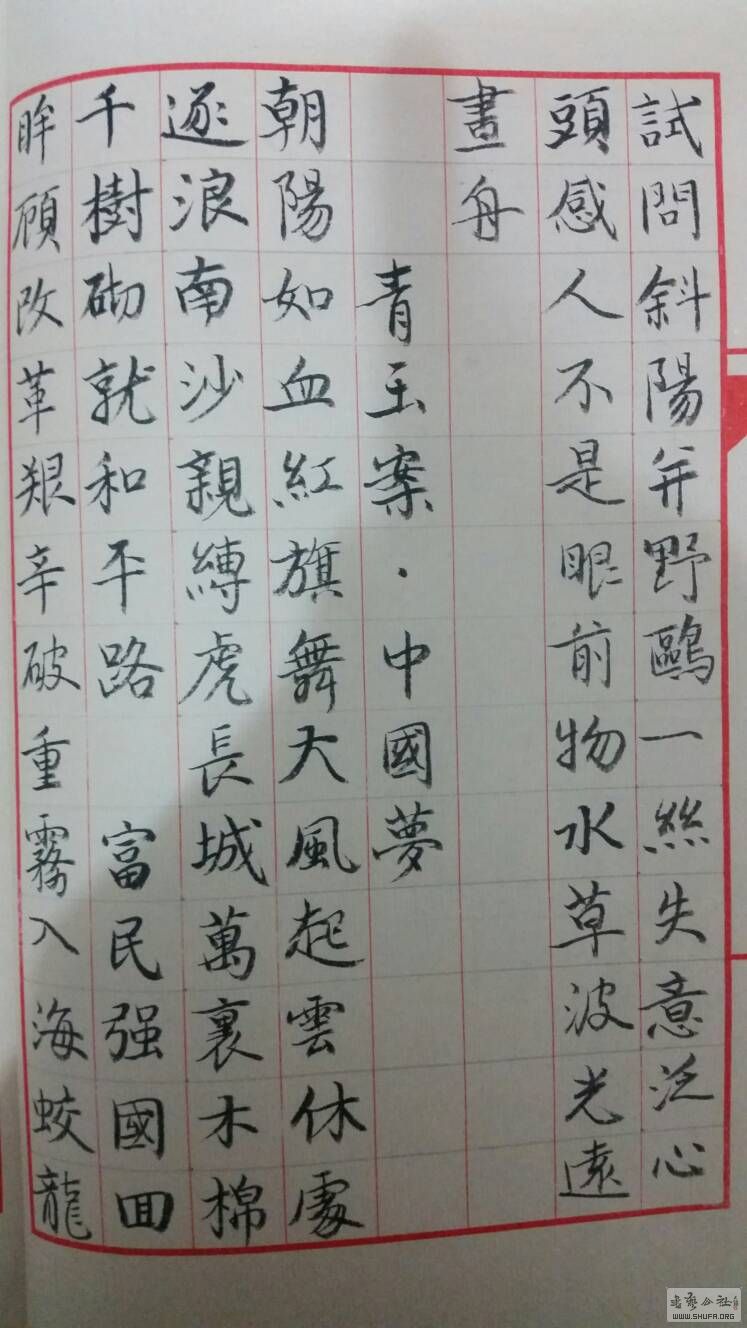 試問斜陽并野鷗一絲失意泛心
頭感人不是眼前物水草波光遠
畫舟
青玉案·中國夢
朝陽如血紅旗舞大風起雲休處
逐浪南沙親縛虎長城萬裏木棉
千樹砌就和平路 富民强國回
眸顧改革艱辛破重霧入海蛟龍
WWW.SHUFA.ORG